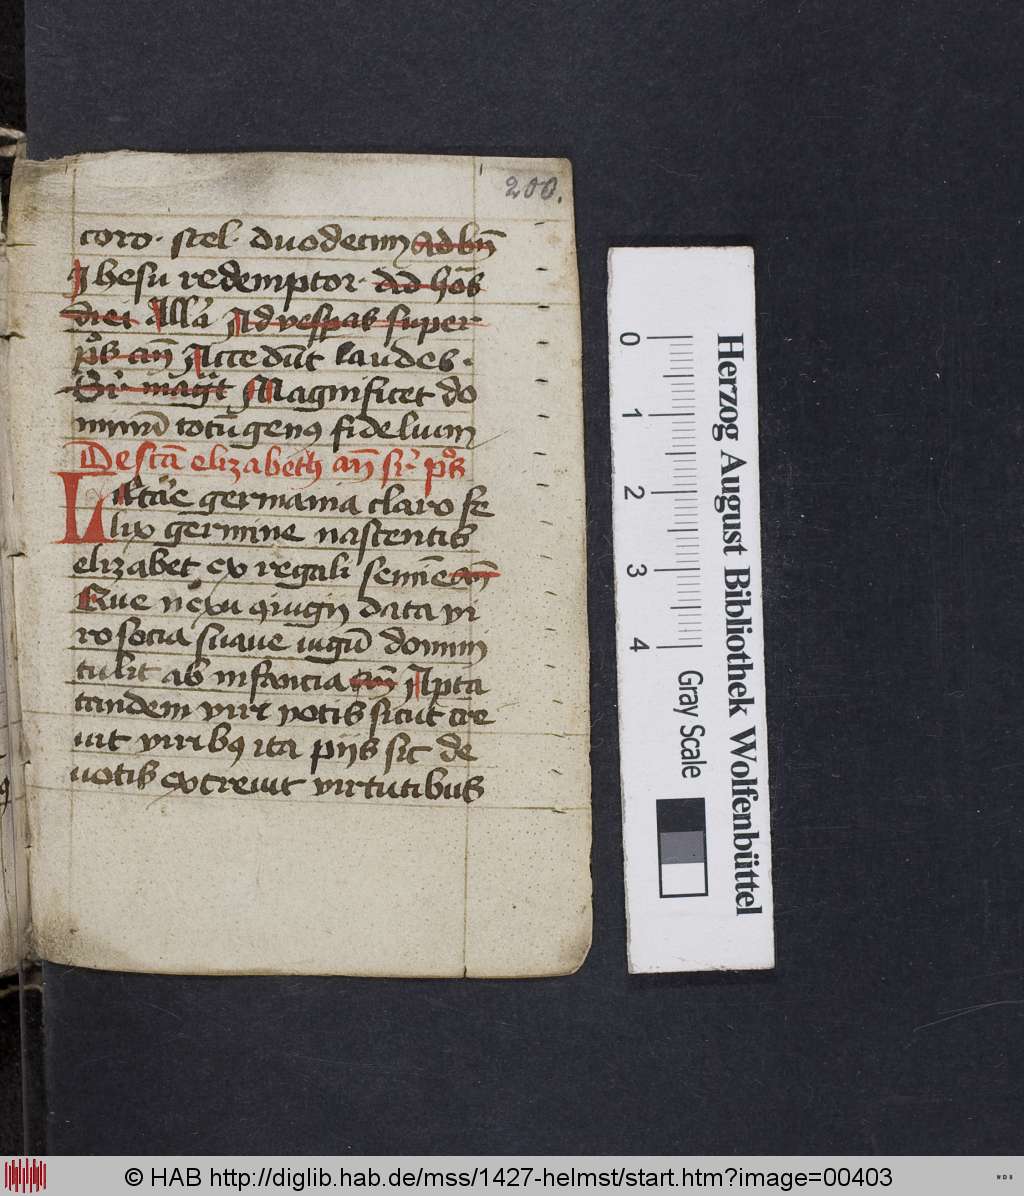 200.
coro· stel· duodecim Ad bn̄
Ihesu redemptor· Ad hōs
diei Alla Ad vesp̄as super
ps̄ an̄ Accedūt laudes·
Sr̄ magt̄ Magnificet do
minū totū genꝯ fidelium
De sctā elizabeth an̄ sr̄ ps̄
Letare germania claro fe
lix germine nascentis
elizabet ex regali semīe an̄
Que nexu ꝯiugij data vi
ro socia suaue iugū domini
tulit ab infancia an̄ Apta
tandem viri votis sicut cre
uit viribꝯ ita pijs sic de
uotis excreuit virtutibus
Herzog August Bibliothek Wolfenbüttel
0 1 2 3 4
Gray Scale
© HAB http://diglib.hab.de/mss/1427-helmst/start.htm?image=00403